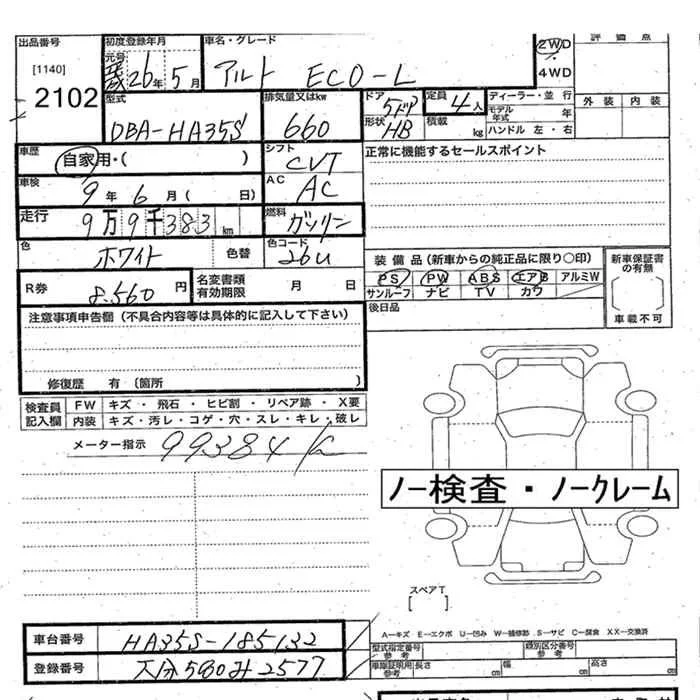 出品番号
[1140]
2102
初度登録年月
元号
26年 5月
車名・グレード
アルト ECO-L
2WD
4WD
評価点
外装 内装
型式
DBA-HA35S
排気量又はkw
660
ドア
5ドア
形状
HB
定員
4人
積載 kg
ディーラー・並行
モデル年式 年
ハンドル 左・右
車歴
自家用・( )
シフト
CVT
正常に機能するセールスポイント
車検
9年 6月( 日)
AC
AC
走行
9万9千383km
燃料
ガソリン
色
ホワイト
色替
色コード
26U
装備品(新車からの純正品に限り○印)
PS PW ABS エアB アルミW
サンルーフ ナビ TV カワ
新車保証書の有無
車載不可
R券
8,560円
名変書類有効期限
月 日
後日品
注意事項申告欄(不具合内容等は具体的に記入して下さい)
修復歴 有(箇所 )
検査員記入欄
FW キズ・飛石・ヒビ割・リペア跡・X要
内装 キズ・汚レ・コゲ・穴・スレ・キレ・破レ
メーター指示
99384K
ノー検査・ノークレーム
スペアT
[ ]
A－キズ E－エクボ U－凹み W－補修跡 S－サビ C－腐食 XX－交換済
車台番号
HA35S-185132
型式指定番号
参考
類別区分番号
参考
登録番号
大分580み2577
車庫証明用
参考
長さ cm
幅 cm
高さ cm